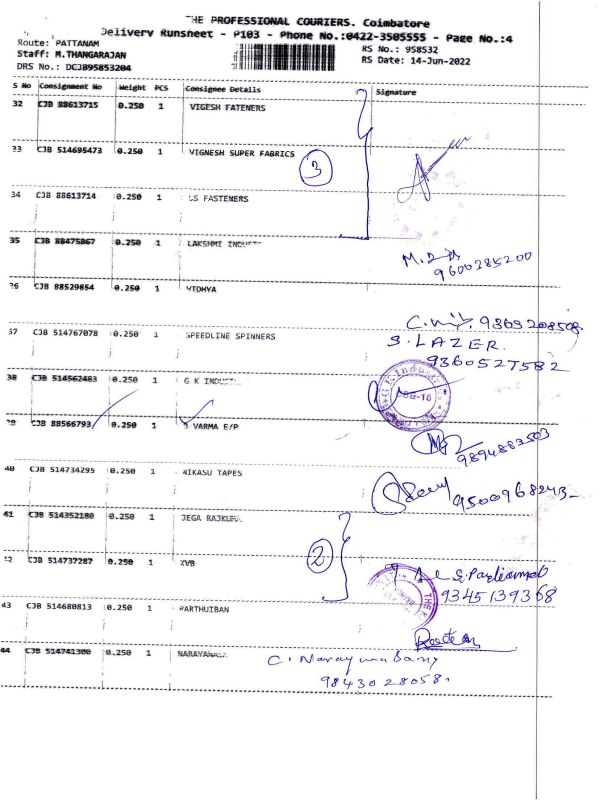 THE PROFESSIONAL COURIERS. Coimbatore
Delivery Runsheet - P103 - Phone No.:0422-3505555 - Page No.:4
Route: PATTANAM
RS No.: 958532
Staff: M.THANGARAJAN
RS Date: 14-Jun-2022
DRS No.: DCJB95853204
S No Consignment No Weight PCS Consignee Details Signature
32 CJB 88613715 0.250 1 VIGESH FATENERS
33 CJB 514695473 0.250 1 VIGNESH SUPER FABRICS
3
34 CJB 88613714 0.250 1 SS FASTENERS
35 CJB 88475867 0.250 1 LAKSHMI
9600285200
36 CJB 88529854 0.250 1 VIDHYA
9865208508
37 CJB 514767078 0.250 1 SPEEDLINE SPINNERS
S. LAZER.
9360527582
38 CJB 514562483 0.250 1 G K
39 CJB 88566793 0.250 1 VARMA E/P
9894883503
40 CJB 514734295 0.250 1 NIKASU TAPES
9500968243
41 CJB 514352180 0.250 1 JEGA
2
42 CJB 514737287 0.250 1 ZVB
9345139368
43 CJB 514680813 0.250 1 PARTHUIBAN
44 CJB 514741300 0.250 1
9843028058